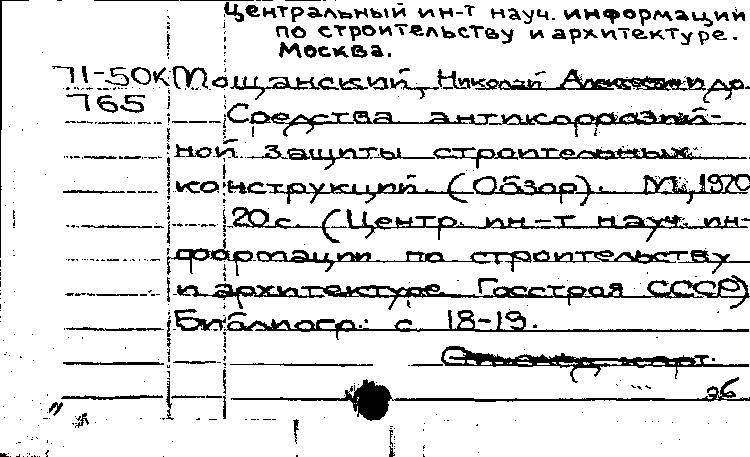 Центральный ин-т науч. информации
по строительству и архитектуре.
Москва.
71-50к Мощанский, Николай Алексеевич и др.
765
Средства антикоррозий-
ной защиты строительных
конструкций. (Обзор). М., 1970
20 с. (Центр. ин-т науч. ин-
формации по строительству
и архитектуре Госстроя СССР)
Библиогр.: с. 18-19.
карт.